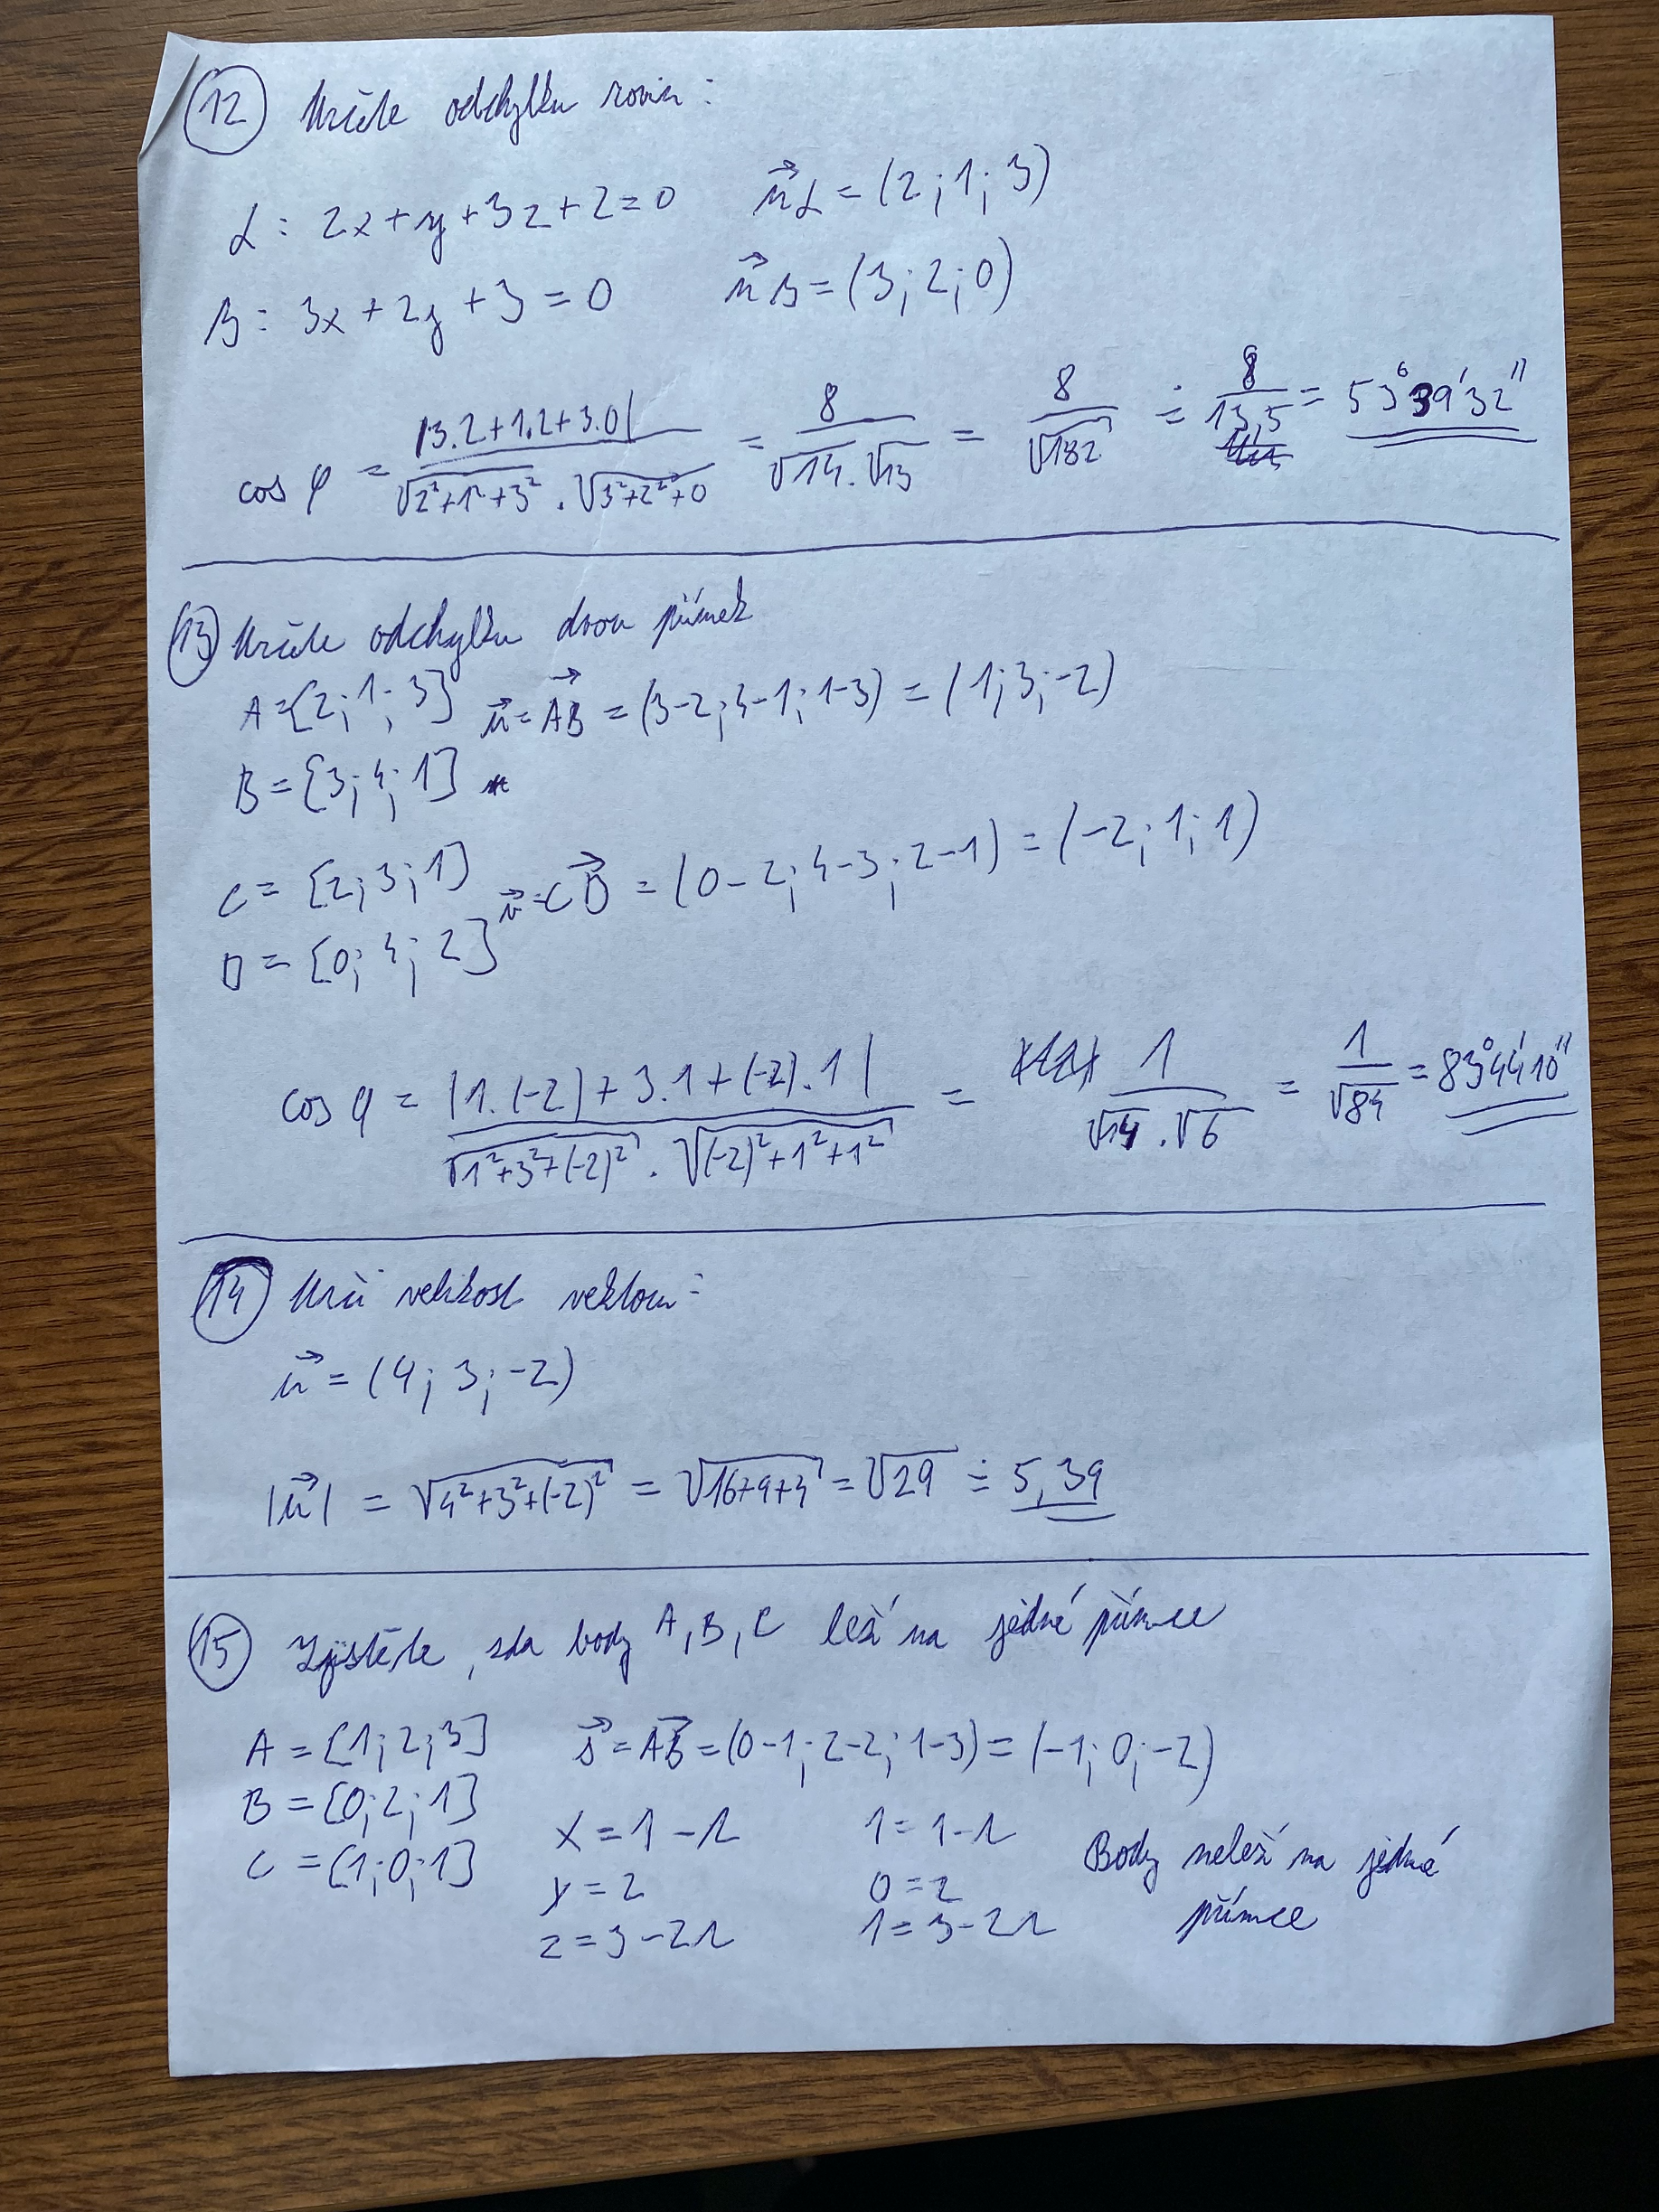 12 Určete odchylku rovin:
α: 2x+y+3z+2=0 n⃗α=(2;1;3)
β: 3x+2y+3=0 n⃗β=(3;2;0)
cos φ = |3.2+1.2+3.0| / √2²+1²+3² . √3²+2²+0 = 8 / √14.√13 = 8 / √182 ≐ 8 / 13,5 = 53°39'32"
13 Určete odchylku dvou přímek
A=[2;1;3] u⃗=AB⃗=(3-2;4-1;1-3)=(1;3;-2)
B=[3;4;1]
C=[2;3;1] v⃗=CD⃗=(0-2;4-3;2-1)=(-2;1;1)
D=[0;4;2]
cos φ = |1.(-2)+3.1+(-2).1| / √1²+3²+(-2)² . √(-2)²+1²+1² = 1 / √14.√6 = 1 / √84 = 83°44'10"
14 Urči velikost vektoru:
u⃗=(4;3;-2)
|u⃗| = √4²+3²+(-2)² = √16+9+4 = √29 ≐ 5,39
15 Zjistěte, zda body A,B,C leží na jedné přímce
A=[1;2;3] s⃗=AB⃗=(0-1;2-2;1-3)=(-1;0;-2)
B=[0;2;1]
C=[1;0;1] x=1-r 1=1-r Body neleží na jedné
y=2 0=2 přímce
z=3-2r 1=3-2r